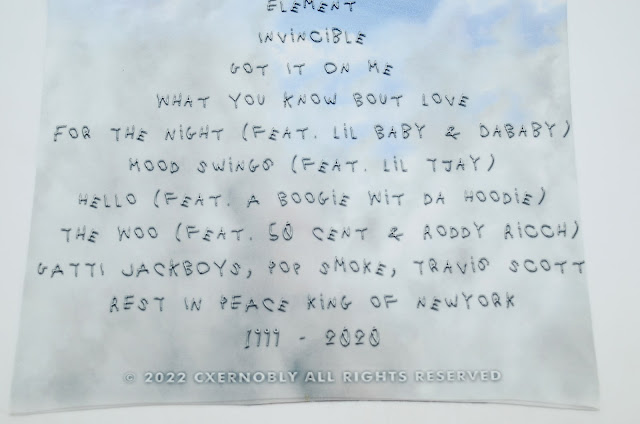 ELEMENT
INVINCIBLE
GOT IT ON ME
WHAT YOU KNOW BOUT LOVE
FOR THE NIGHT (FEAT. LIL BABY & DABABY)
MOOD SWINGS (FEAT. LIL TJAY)
HELLO (FEAT. A BOOGIE WIT DA HOODIE)
THE WOO (FEAT. 50 CENT & RODDY RICCH)
GATTI JACKBOYS, POP SMOKE, TRAVIS SCOTT
REST IN PEACE KING OF NEWYORK
1999 - 2020
© 2022 CXERNOBLY ALL RIGHTS RESERVED